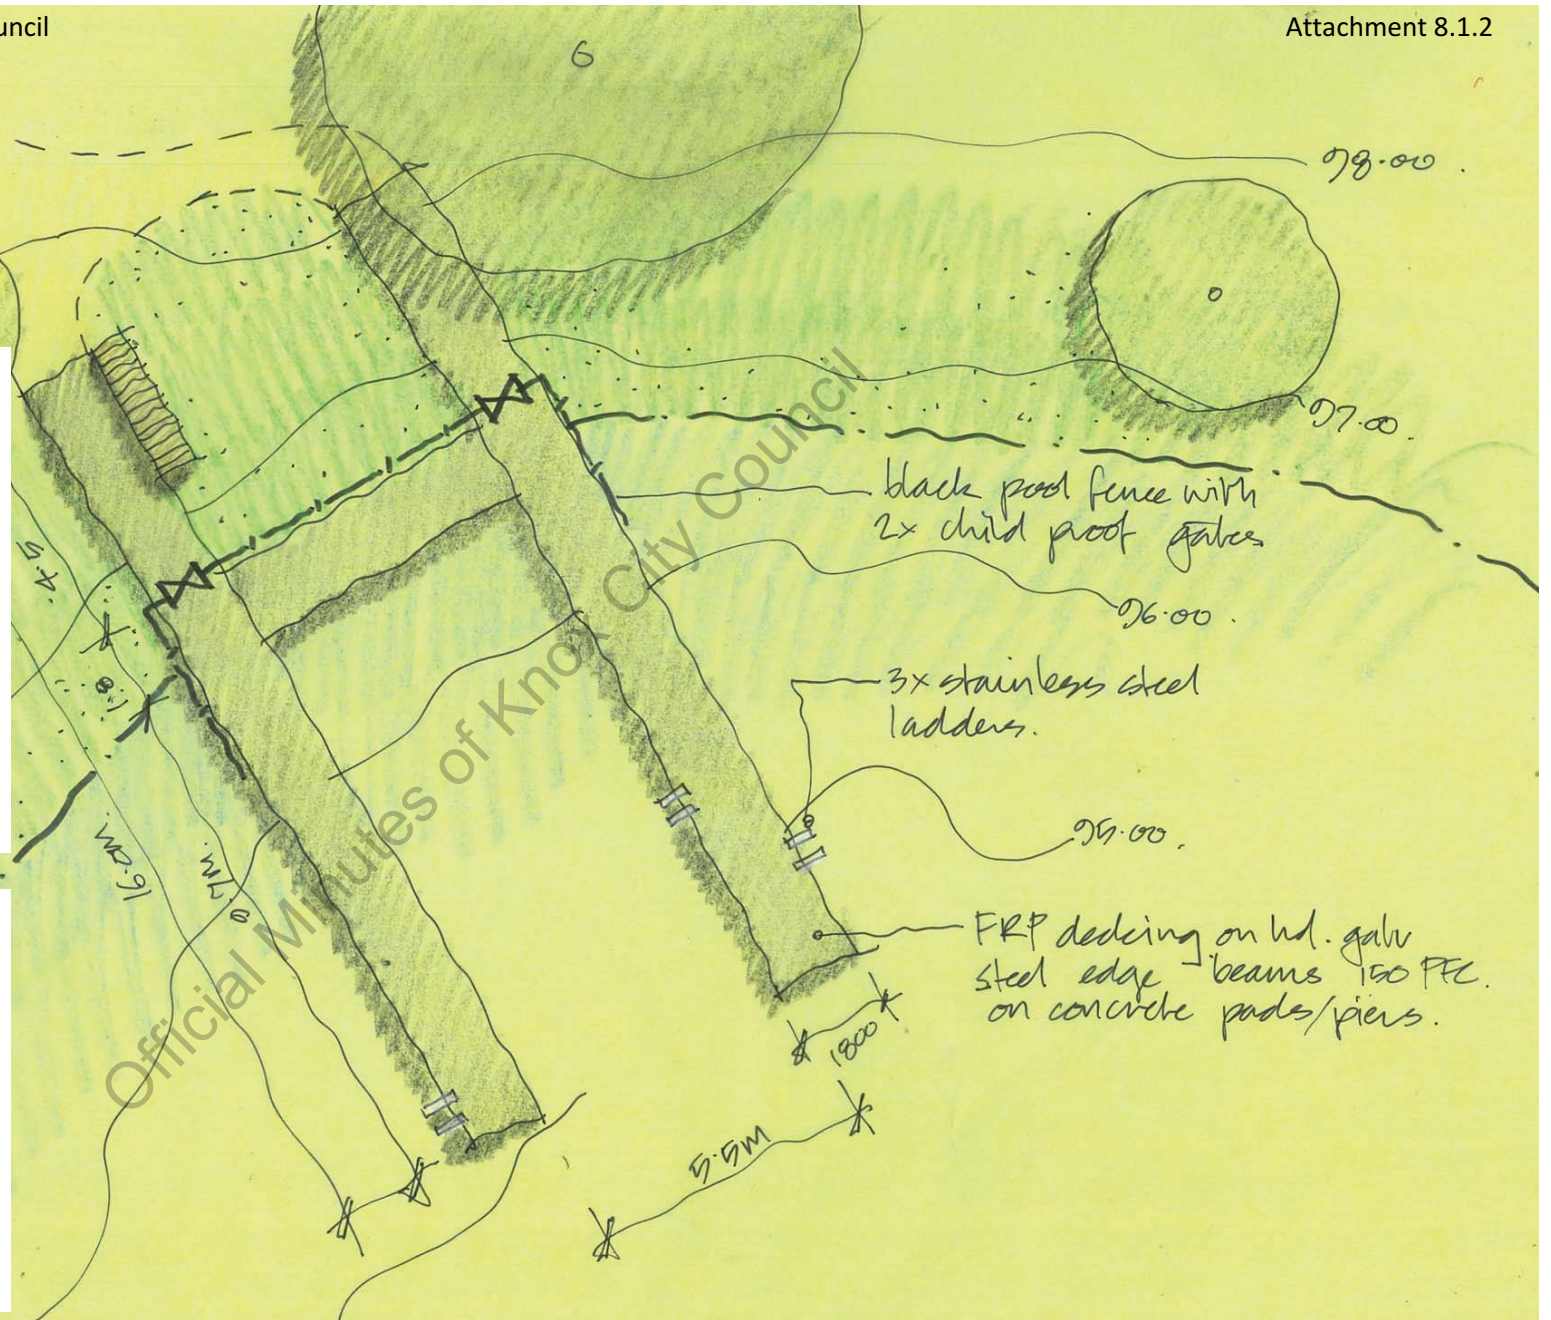 uncil
Attachment 8.1.2
6
98.00.
97.00.
black pool fence with
2x child proof gates
96.00.
3x stainless steel
ladders.
95.00.
FRP decking on hd. galv
steel edge beams 150 PFC.
on concrete pads/piers.
1800
5.5m
4.5
1.8
16.0m
Official Minutes of Knox City Council